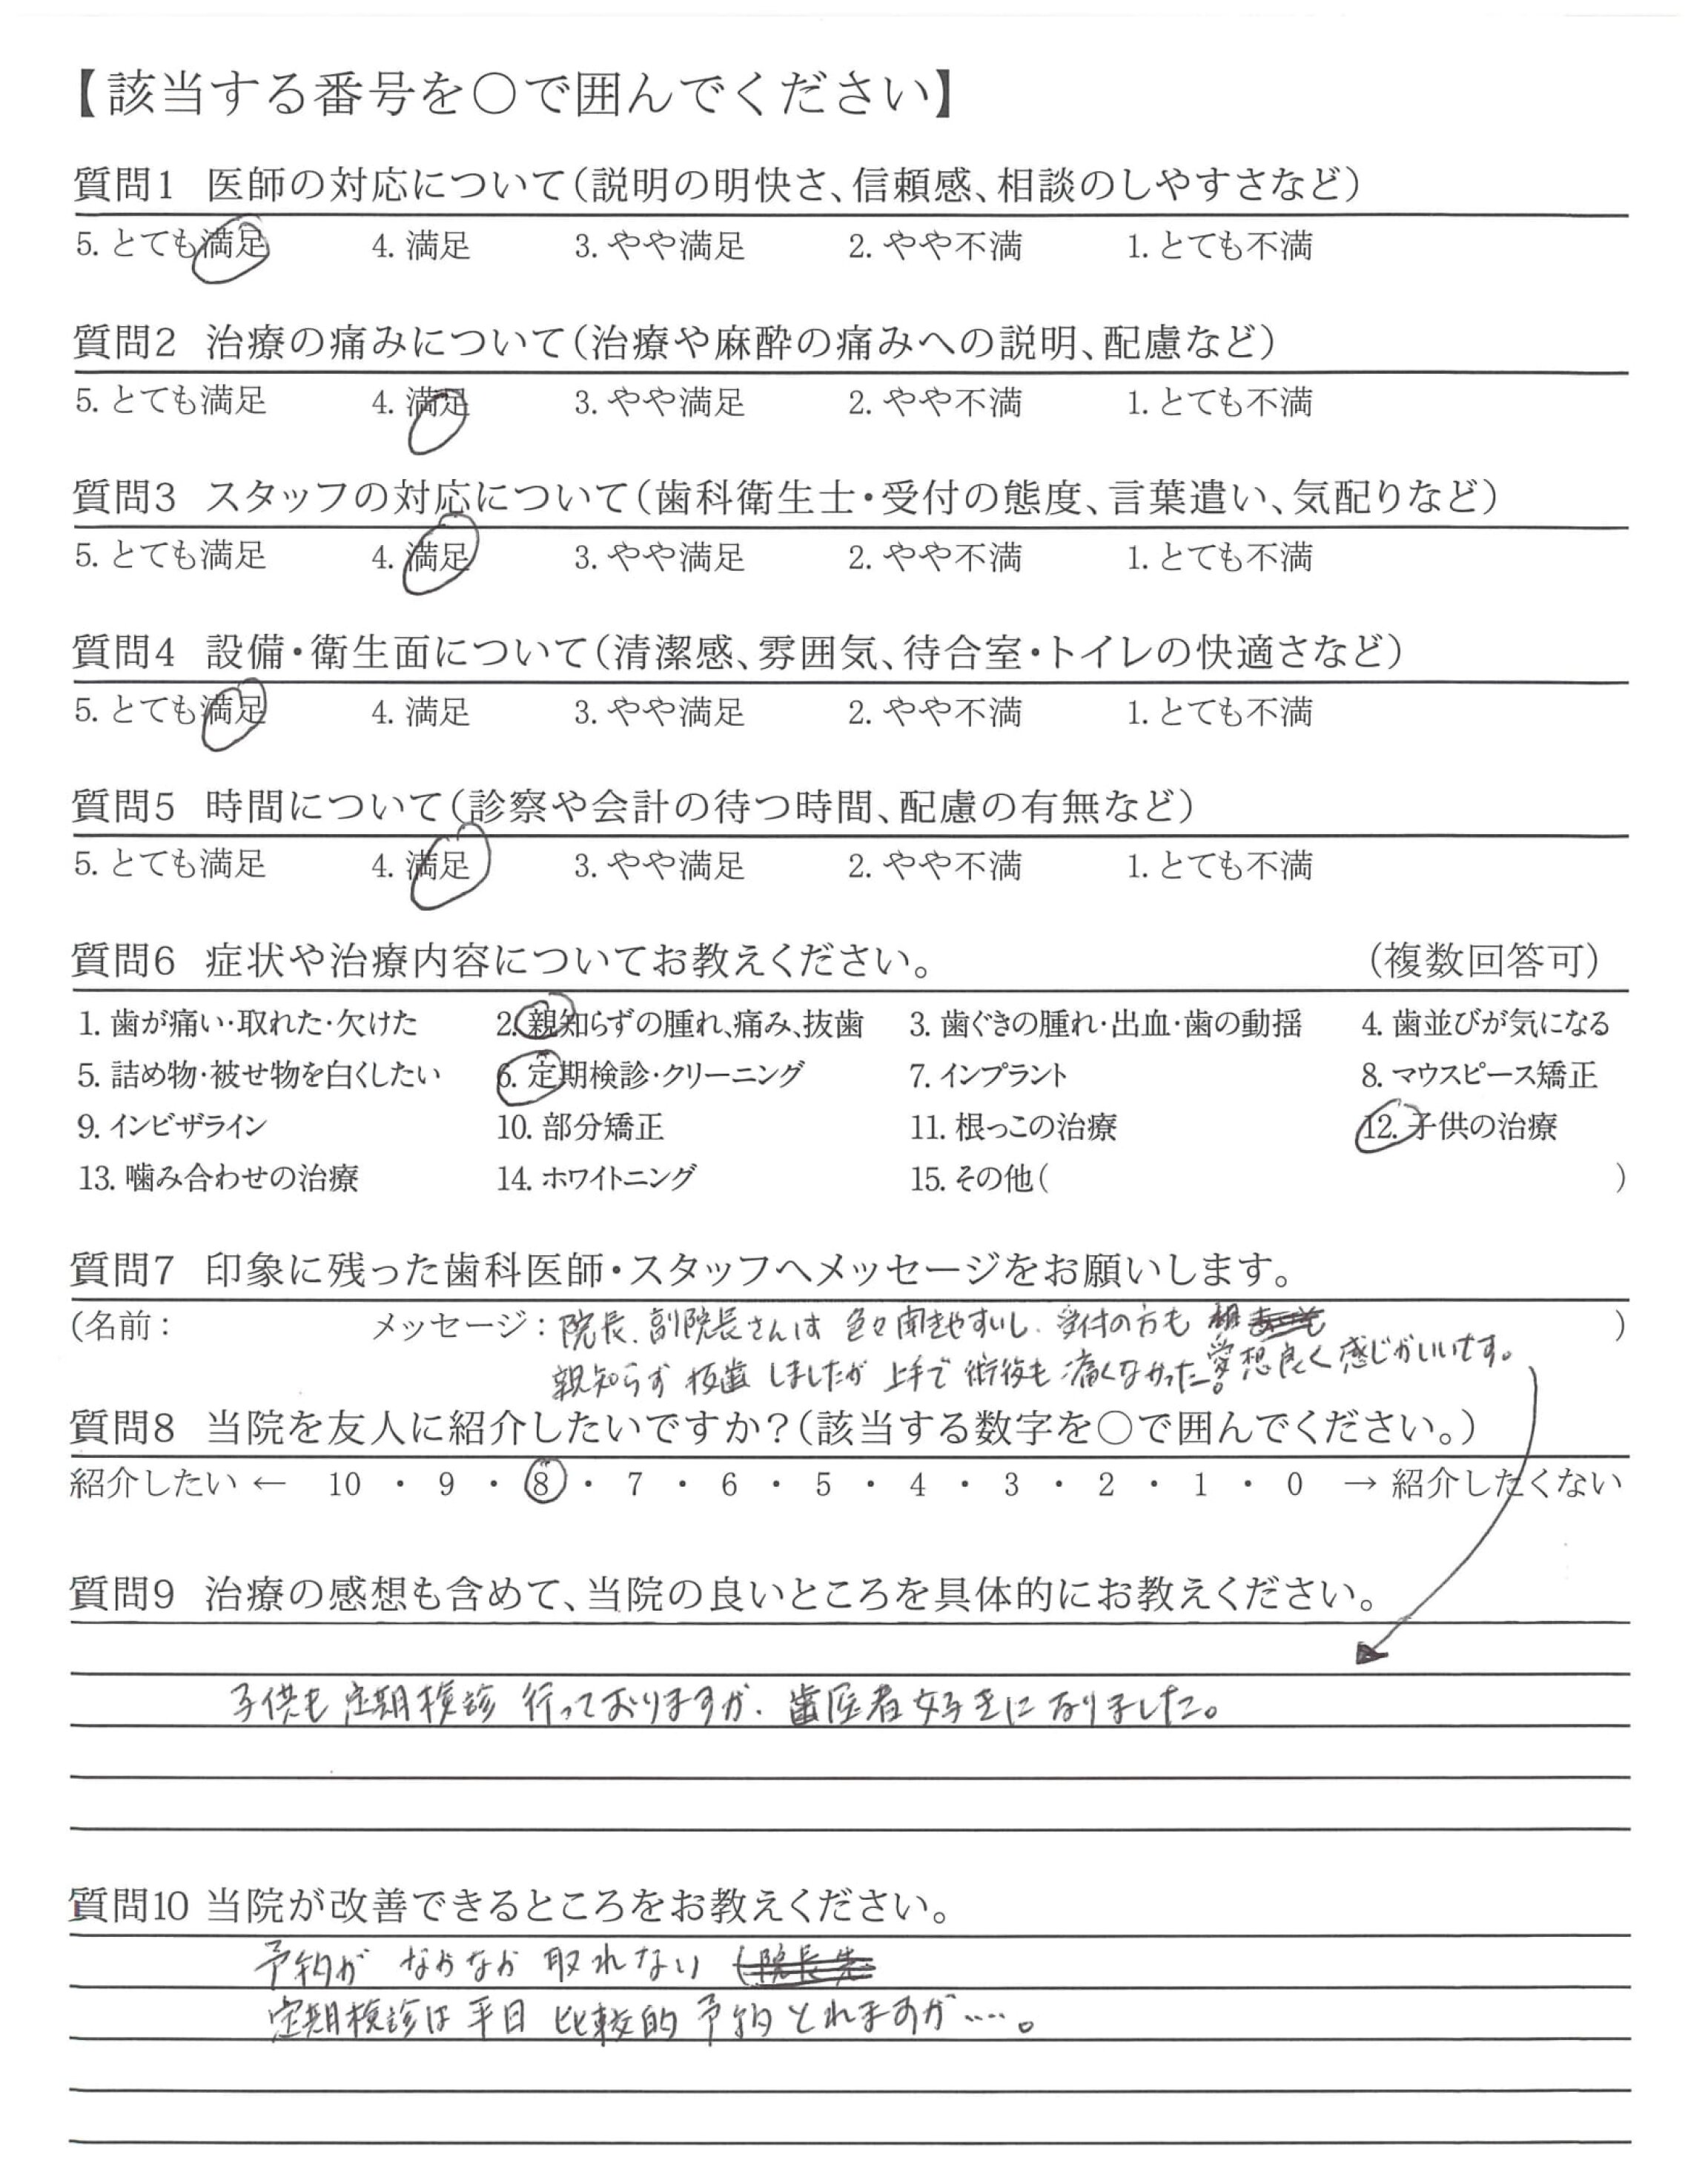 【該当する番号を〇で囲んでください】
質問1 医師の対応について(説明の明快さ、信頼感、相談のしやすさなど)
5. とても満足 4. 満足 3. やや満足 2. やや不満 1. とても不満
質問2 治療の痛みについて(治療や麻酔の痛みへの説明、配慮など)
5. とても満足 4. 満足 3. やや満足 2. やや不満 1. とても不満
質問3 スタッフの対応について(歯科衛生士・受付の態度、言葉遣い、気配りなど)
5. とても満足 4. 満足 3. やや満足 2. やや不満 1. とても不満
質問4 設備・衛生面について(清潔感、雰囲気、待合室・トイレの快適さなど)
5. とても満足 4. 満足 3. やや満足 2. やや不満 1. とても不満
質問5 時間について(診察や会計の待つ時間、配慮の有無など)
5. とても満足 4. 満足 3. やや満足 2. やや不満 1. とても不満
質問6 症状や治療内容についてお教えください。 (複数回答可)
1. 歯が痛い・取れた・欠けた 2. 親知らずの腫れ、痛み、抜歯 3. 歯ぐきの腫れ・出血・歯の動揺 4. 歯並びが気になる
5. 詰め物・被せ物を白くしたい 6. 定期検診・クリーニング 7. インプラント 8. マウスピース矯正
9. インビザライン 10. 部分矯正 11. 根っこの治療 12. 子供の治療
13. 噛み合わせの治療 14. ホワイトニング 15. その他( )
質問7 印象に残った歯科医師・スタッフへメッセージをお願いします。
(名前: メッセージ: 院長、副院長さんは 色々聞きやすいし、受付の方も )
愛想良く感じがいいです。
親知らず 抜歯 しましたが 上手で 術後も 痛くなかった。
質問8 当院を友人に紹介したいですか?(該当する数字を〇で囲んでください。)
紹介したい ← 10 ・ 9 ・ 8 ・ 7 ・ 6 ・ 5 ・ 4 ・ 3 ・ 2 ・ 1 ・ 0 → 紹介したくない
質問9 治療の感想も含めて、当院の良いところを具体的にお教えください。
子供も 定期検診 行っておりますが、歯医者好きになりました。
質問10 当院が改善できるところをお教えください。
予約が なかなか 取れない
定期検診は 平日 比較的 予約 とれますが……。